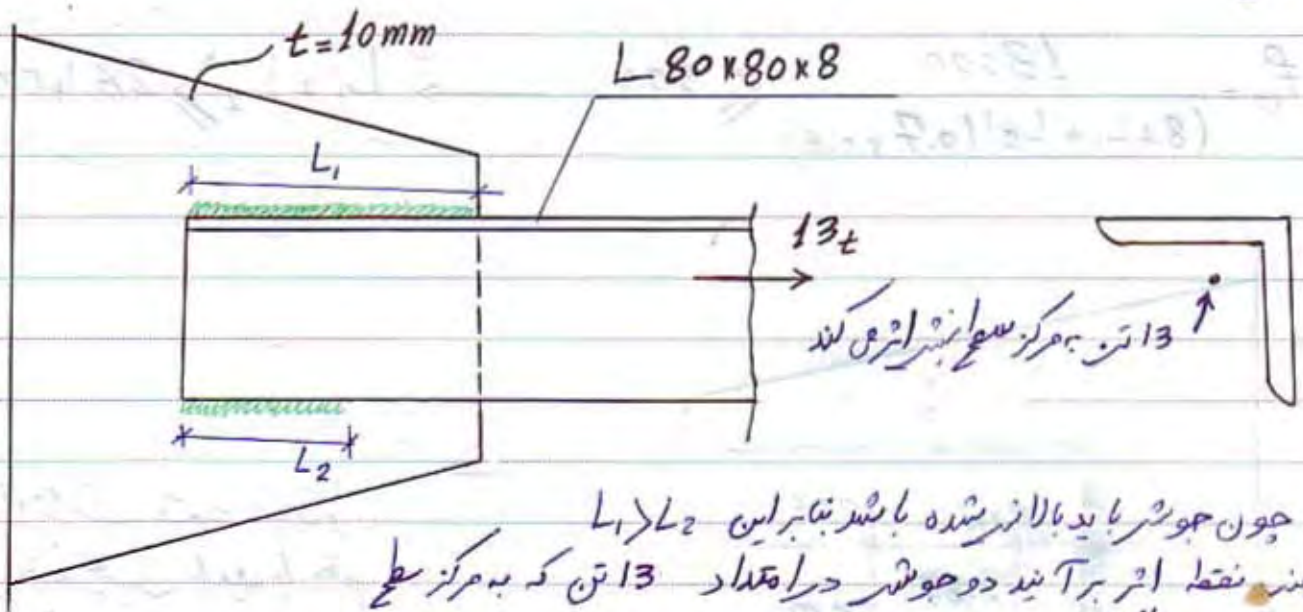 t=10mm
L 80x80x8
L1
13t
13 تن به مرکز سطح نبشی اثر می کند
L2
چون جوش باید بالانس شده باشد بنابراین L1>L2
نقطه اثر برآیند دو جوش در امتداد 13 تن که به مرکز سطح